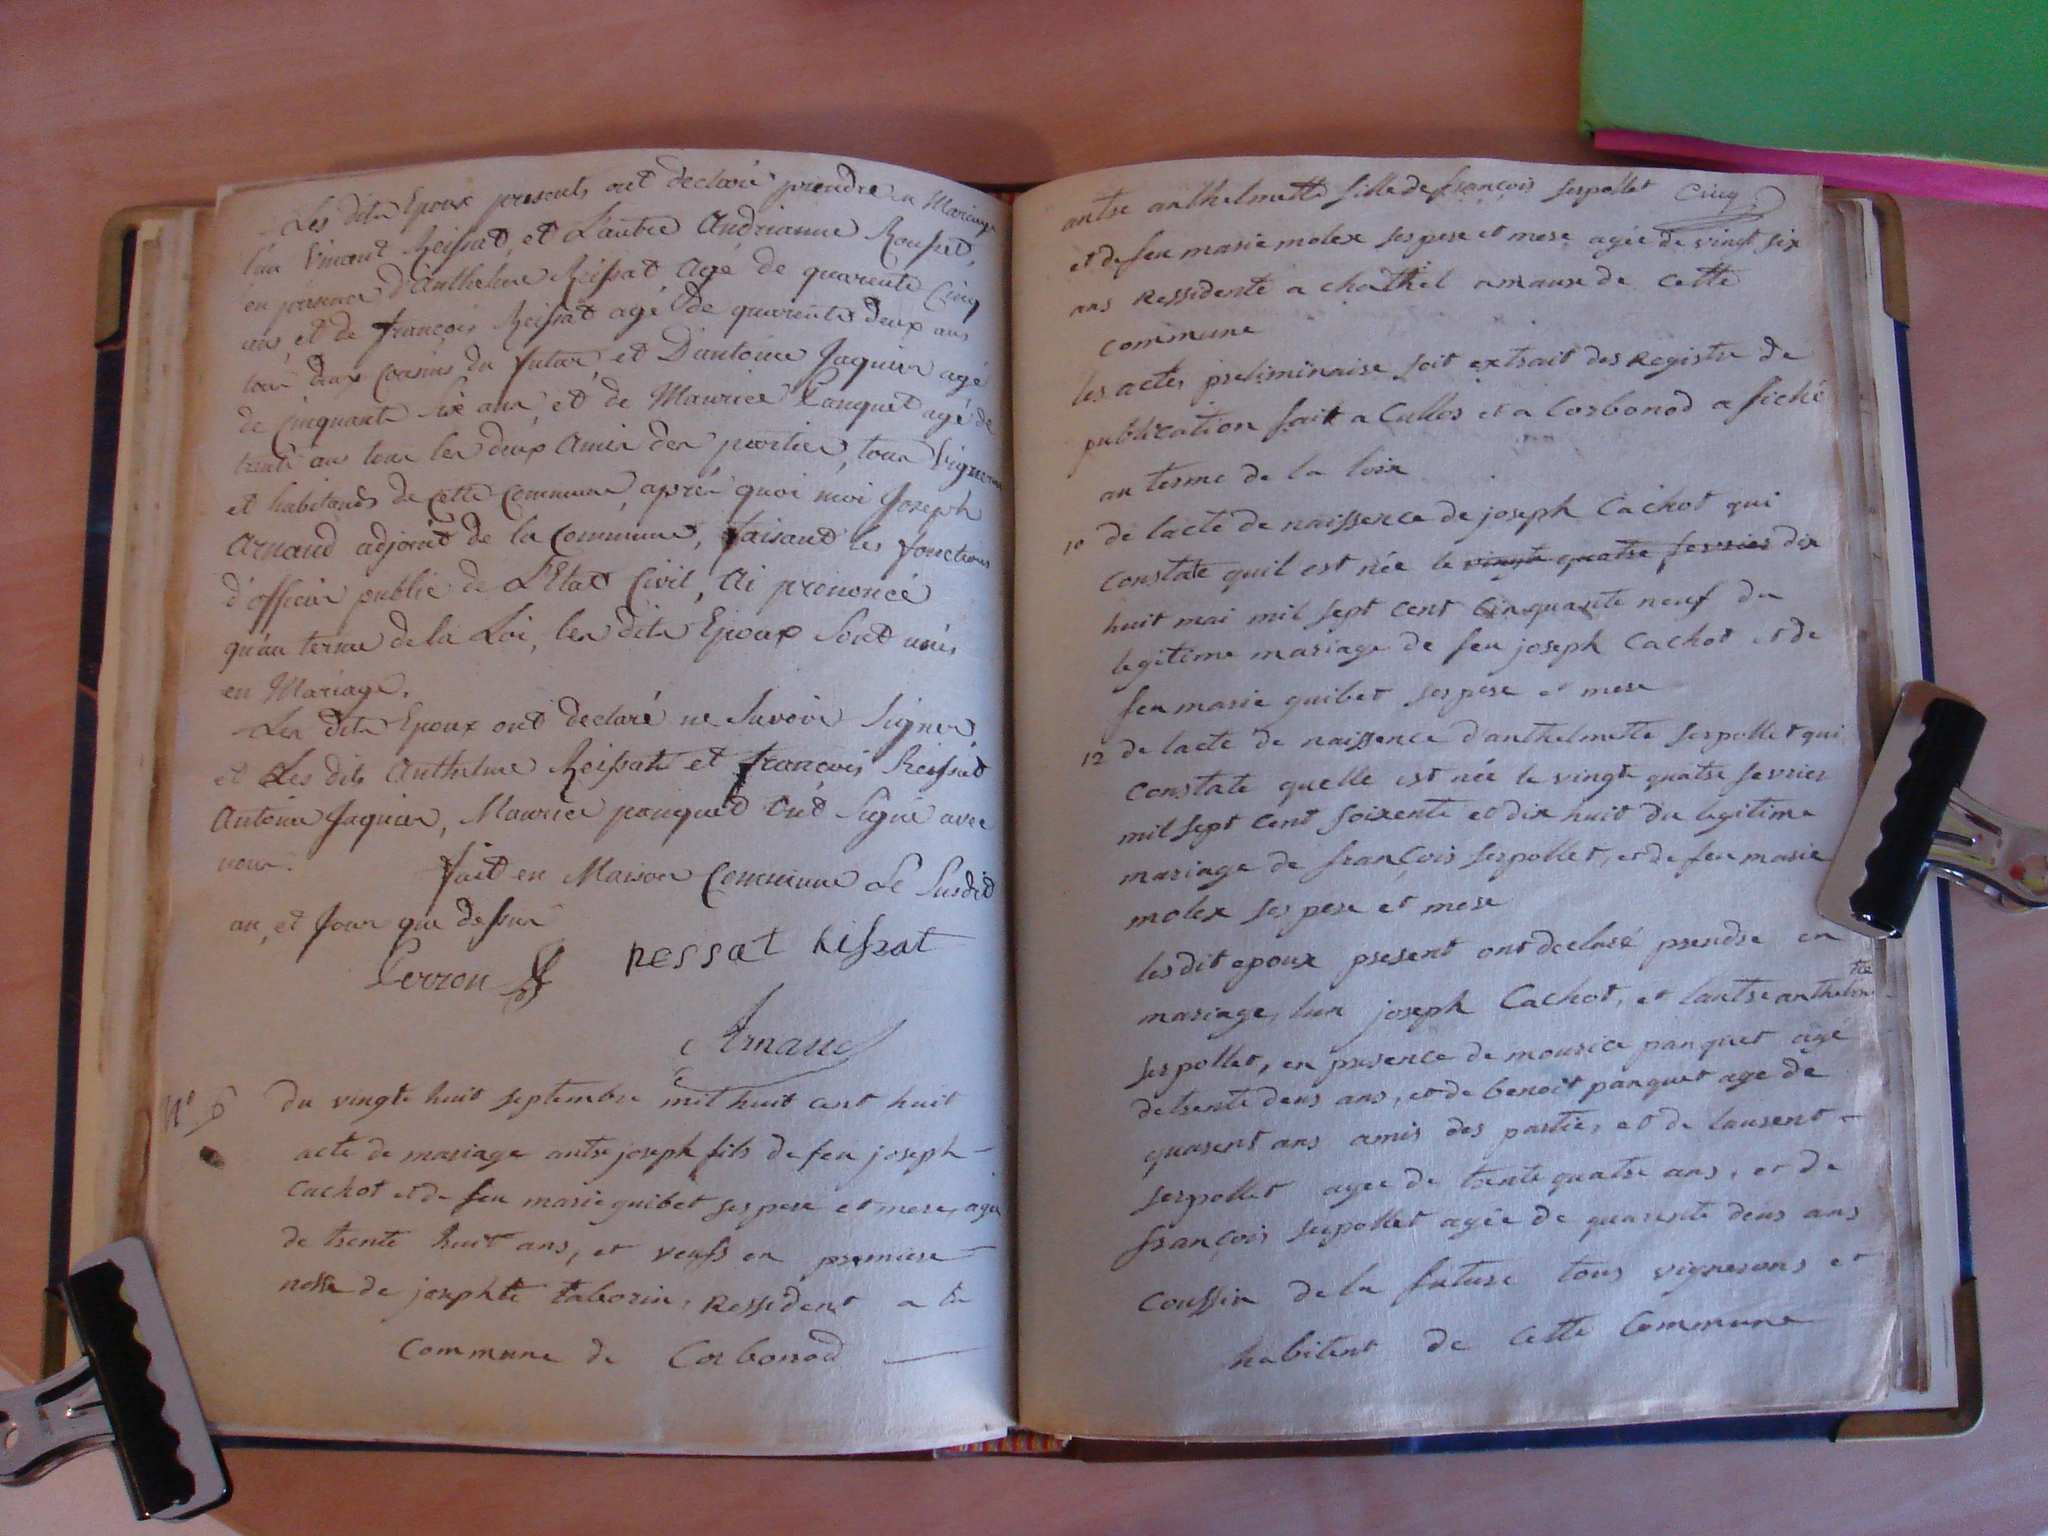 Les dits Epoux presents, ont declaré prendre en Mariage
l'un Vincent Reissat, et L'autre Andrianne Rousset,
en présence D'Anthelme Reissat agé de quarente Cinq
ans, et de françois Reissat agé de quarente deux ans
tous deux cousins du futur, et D'antoine Jaquier agé
de Cinquant Six ans, et de Maurice Panquet agé de
trente ans tous les deux Amis des parties, tous Vignerons
et habitants de cette Commune, après quoi moi Joseph
Arnaud adjoint de la Commune, faisant les fonctions
d'officier public de L'Etat Civil, Ai prononcé
qu'au terme de la Loi, les dits Epoux Sont unis
en Mariage.
Les dits Epoux ont declaré ne Savoir Signer,
et Les dits Anthelme Reissat et françois Reissat
Antoine Jaquier, Maurice panquet ont Signé avec
nous.
fait en Maison Commune Le Susdit
an, et Jour que dessus
Perron Ressat Rissat
Arnaud
N° 6
du vingte huit septembre mil huit cent huit
acte de mariage antre joseph fils de feu joseph
Cachot et de feu marie guibet ses pere et mere, agée
de trente huit ans, et veufs en premiere
nosse de josephte taborin, Ressident a la
Commune de Corbonod
antre anthelmette fille de françois serpollet Cinq.
et de feu marie molex ses pere et mere agée de vingt six
ans Ressidente a chathel amaux de cette
commune
les actes preliminaire soit extrait des Registre de
publication fait a Culloz et a Corbonod afiché
au terme de la loix
10 de lacte de naissence de joseph Cachot qui
Constate quil est née le vingte quatre fevrier dix
huit mai mil sept cent Cinquante neuf du
legitime mariage de feu joseph Cachot et de
feu marie guibet ses pere et mere
12 de lacte de naissence danthelmette serpollet qui
Constate quelle est née le vingte quatre fevrier
mil sept cent soixente et dix huit du legitime
mariage de françois serpollet, et de feu marie
molex ses pere et mere
les dit epoux present ont declaré prendre en
mariage, lun joseph Cachot, et lautre anthelmette
serpollet, en presence de mourice panquet agé
de trente deus ans, et de benoit panquet age de
quarent ans amis des partie, et de laurent
serpollet agee de tante quatre ans, et de
françois serpollet agée de quarente deus ans
Coussin de la future tous vignerons et
habitent de cette Commune